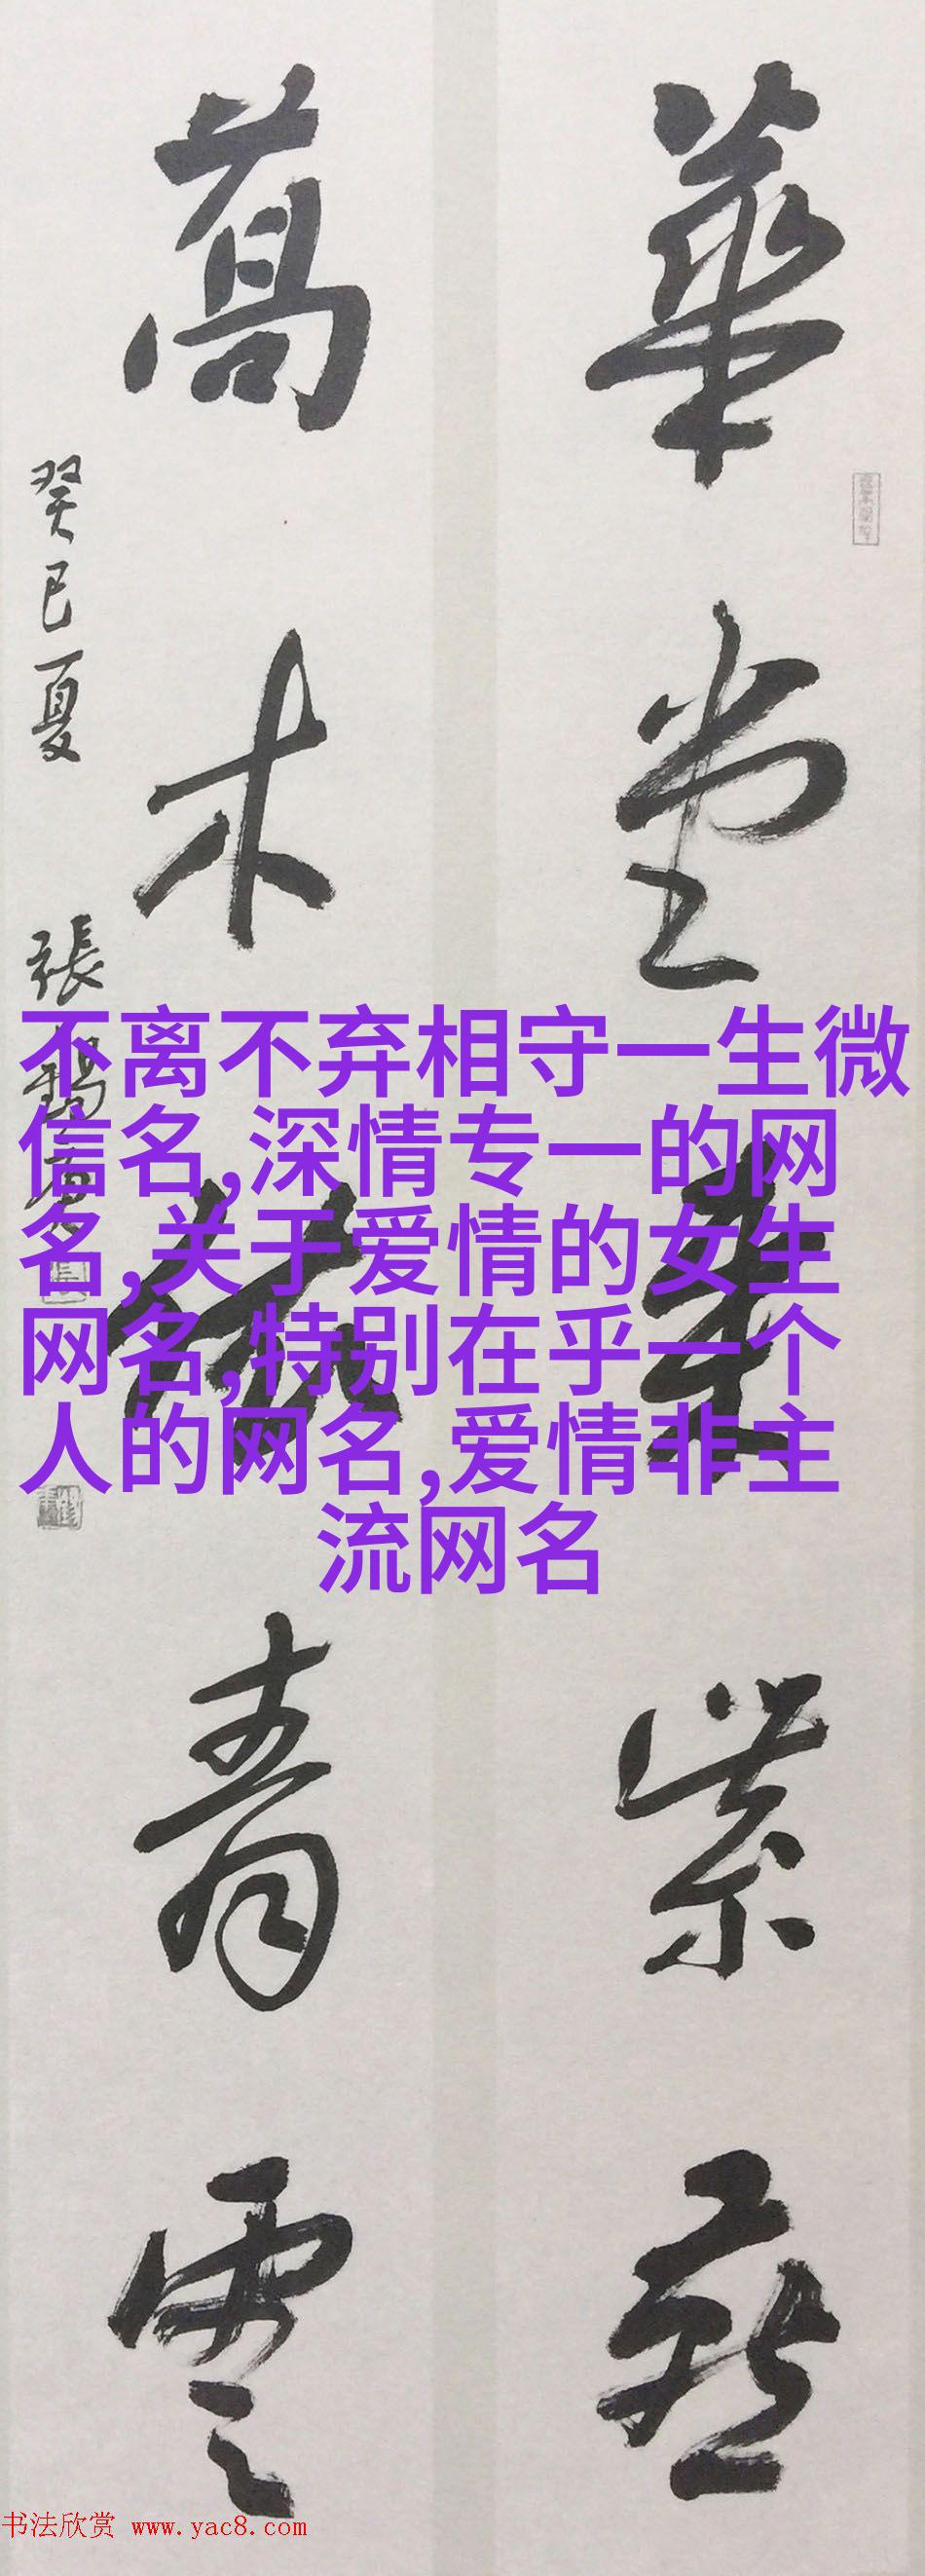 華堂來紫
萬木青雲
癸巳夏 張
不离不弃相守一生微
信名,深情专一的网
名,关于爱情的女生
网名,特别在乎一个
人的网名,爱情非主
流网名
书法欣赏 www.yac8.com